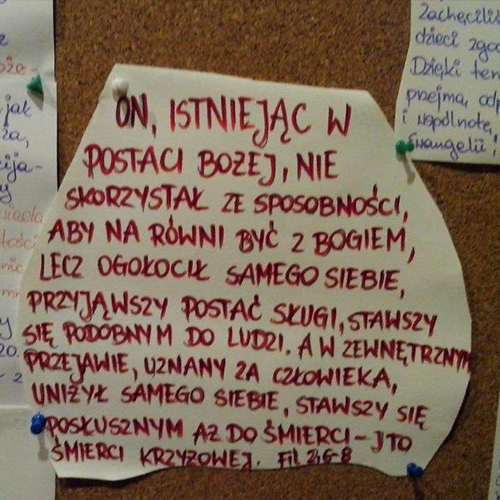 ON, ISTNIEJĄC W
POSTACI BOŻEJ, NIE
SKORZYSTAŁ ZE SPOSOBNOŚCI,
ABY NA RÓWNI BYĆ Z BOGIEM,
LECZ OGOŁOCIŁ SAMEGO SIEBIE,
PRZYJĄWSZY POSTAĆ SŁUGI, STAWSZY
SIĘ PODOBNYM DO LUDZI. A W ZEWNĘTRZNYM
PRZEJAWIE, UZNANY ZA CZŁOWIEKA,
UNIŻYŁ SAMEGO SIEBIE, STAWSZY SIĘ
POSŁUSZNYM AŻ DO ŚMIERCI - I TO
ŚMIERCI KRZYŻOWEJ. Fil 2,6-8
Zachęcili
dzieci zgo
Dzięki tem
przejmą, od
i wspólnotę,
Ewangelii!
jak